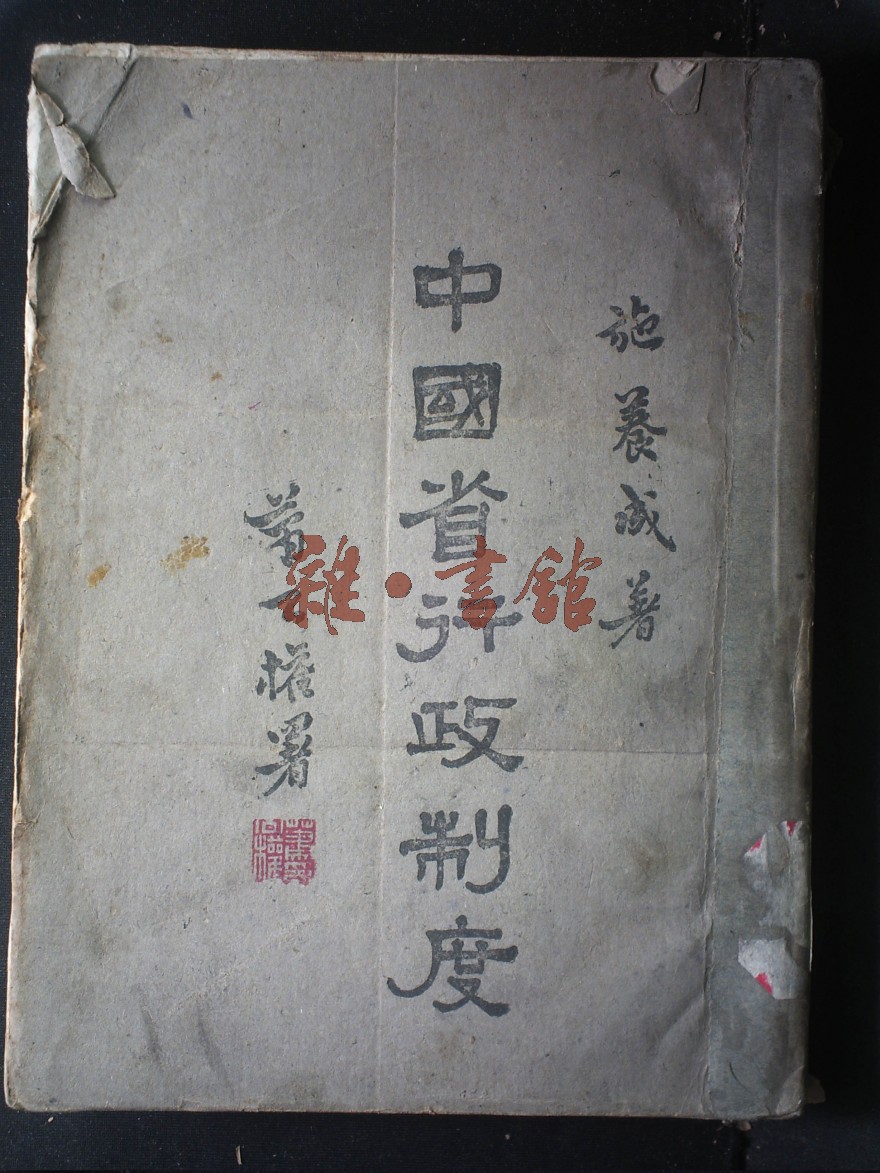 施養成著
中國省行政制度
蕭公權署
雜·書館